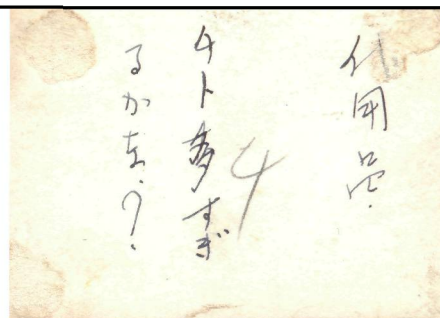 代用品.
4
チト多すぎ
るかな.?.